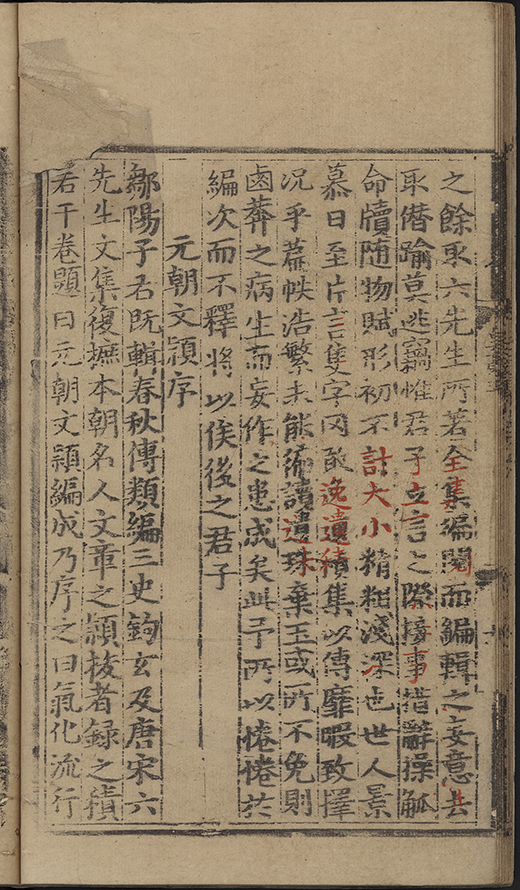 之餘取六先生所著全集編閱而編輯之妄意去
取僭踰莫逃竊惟君子立言之際接事措辭操觚
命牘随物賦形初不計大小精粗淺深也世人景
慕日至片言隻字罔敢逸遺積集以傳靡暇致擇
况乎篇帙浩繁未能徧讀遺珠棄玉或所不免則
鹵莽之病生而妄作之患成矣此予所以惓惓於
編次而不釋將以俟後之君子
元朝文穎序
鄱陽子君既輯春秋傳類編三史鉤玄及唐宋六
先生文集復摭本朝名人文章之穎拔者録之積
若干卷題曰元朝文穎編成乃序之曰氣化流行